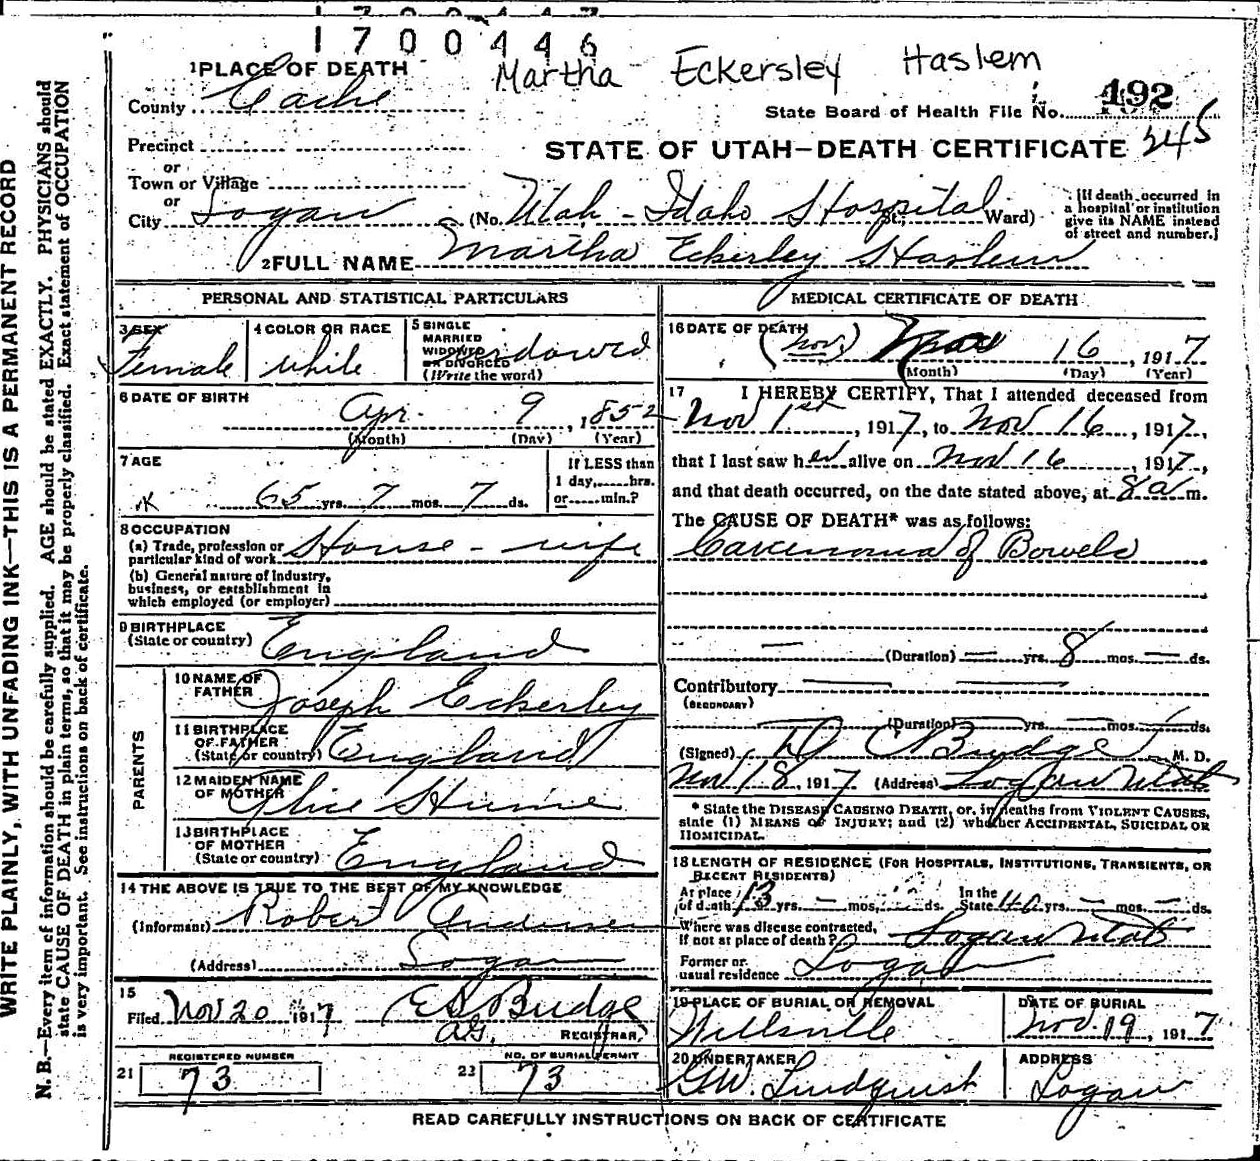 1700446
Martha Eckersley Haslem
1 PLACE OF DEATH
County Cache
State Board of Health File No. 192
245
Precinct
or
Town or Village
or
City Logan
STATE OF UTAH—DEATH CERTIFICATE
(No. Utah-Idaho Hospital St.; Ward)
[If death occurred in
a hospital or institution
give its NAME instead
of street and number.]
2 FULL NAME Martha Eckerley Haslem
PERSONAL AND STATISTICAL PARTICULARS
3 SEX
Female
4 COLOR OR RACE
white
5 SINGLE
MARRIED
WIDOWED
OR DIVORCED
(Write the word)
widowed
6 DATE OF BIRTH
Apr. 9, 1852
(Month) (Day) (Year)
7 AGE
65 yrs. 7 mos. 7 ds.
If LESS than
1 day, hrs.
or min.?
8 OCCUPATION
(a) Trade, profession or
particular kind of work House-wife
(b) General nature of Industry,
business, or establishment in
which employed (or employer)
9 BIRTHPLACE
(State or country) England
PARENTS
10 NAME OF
FATHER Joseph Eckerley
11 BIRTHPLACE
OF FATHER
(State or country) England
12 MAIDEN NAME
OF MOTHER Alice Hume
13 BIRTHPLACE
OF MOTHER
(State or country) England
14 THE ABOVE IS TRUE TO THE BEST OF MY KNOWLEDGE
(Informant) Robert Anderson
(Address) Logan
15
Filed Nov 20 1917 E S Budge
REGISTRAR
REGISTERED NUMBER
21 73
NO. OF BURIAL PERMIT
22 73
MEDICAL CERTIFICATE OF DEATH
16 DATE OF DEATH
(Nov) 16, 1917
(Month) (Day) (Year)
17 I HEREBY CERTIFY, That I attended deceased from
Nov 1st, 1917, to Nov 16, 1917,
that I last saw her alive on Nov 16, 1917,
and that death occurred, on the date stated above, at 8 a m.
The CAUSE OF DEATH* was as follows:
Carcinoma of Bowels
(Duration) — yrs. 8 mos. — ds.
Contributory
(SECONDARY)
(Duration) yrs. — mos. ds.
(Signed) D C Budge M. D.
Nov 18, 1917 (Address) Logan Utah
* State the DISEASE CAUSING DEATH, or, in deaths from VIOLENT CAUSES,
state (1) MEANS OF INJURY; and (2) whether ACCIDENTAL, SUICIDAL OR
HOMICIDAL.
18 LENGTH OF RESIDENCE (FOR HOSPITALS, INSTITUTIONS, TRANSIENTS, OR
RECENT RESIDENTS)
At place
of death 13 yrs. — mos. ds. In the State 40 yrs. — mos. — ds.
Where was disease contracted,
if not at place of death? Logan Utah
Former or
usual residence Logan
19 PLACE OF BURIAL OR REMOVAL
Wellsville
DATE OF BURIAL
Nov. 19, 1917
20 UNDERTAKER
G.W. Lindquist
ADDRESS
Logan
READ CAREFULLY INSTRUCTIONS ON BACK OF CERTIFICATE
WRITE PLAINLY, WITH UNFADING INK—THIS IS A PERMANENT RECORD
N. B.—Every item of information should be carefully supplied. AGE should be stated EXACTLY. PHYSICIANS should
state CAUSE OF DEATH in plain terms, so that it may be properly classified. Exact statement of OCCUPATION
is very important. See instructions on back of certificate.